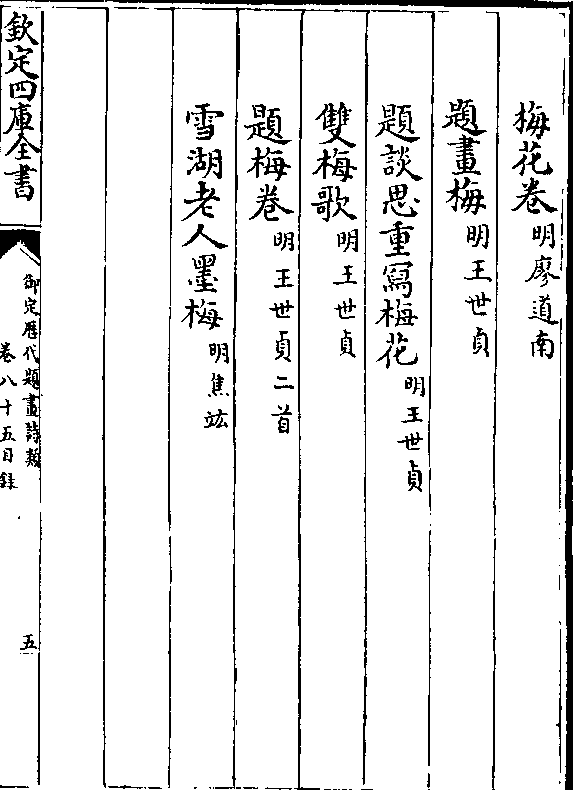 梅花卷明廖道南
題畫梅明王世貞
題談思重寫梅花明王世貞
雙梅歌明王世貞
題梅卷明王世貞二首
雪湖老人墨梅明焦竑
欽定四庫全書
御定歷代題畫詩類
卷八十五目錄
五